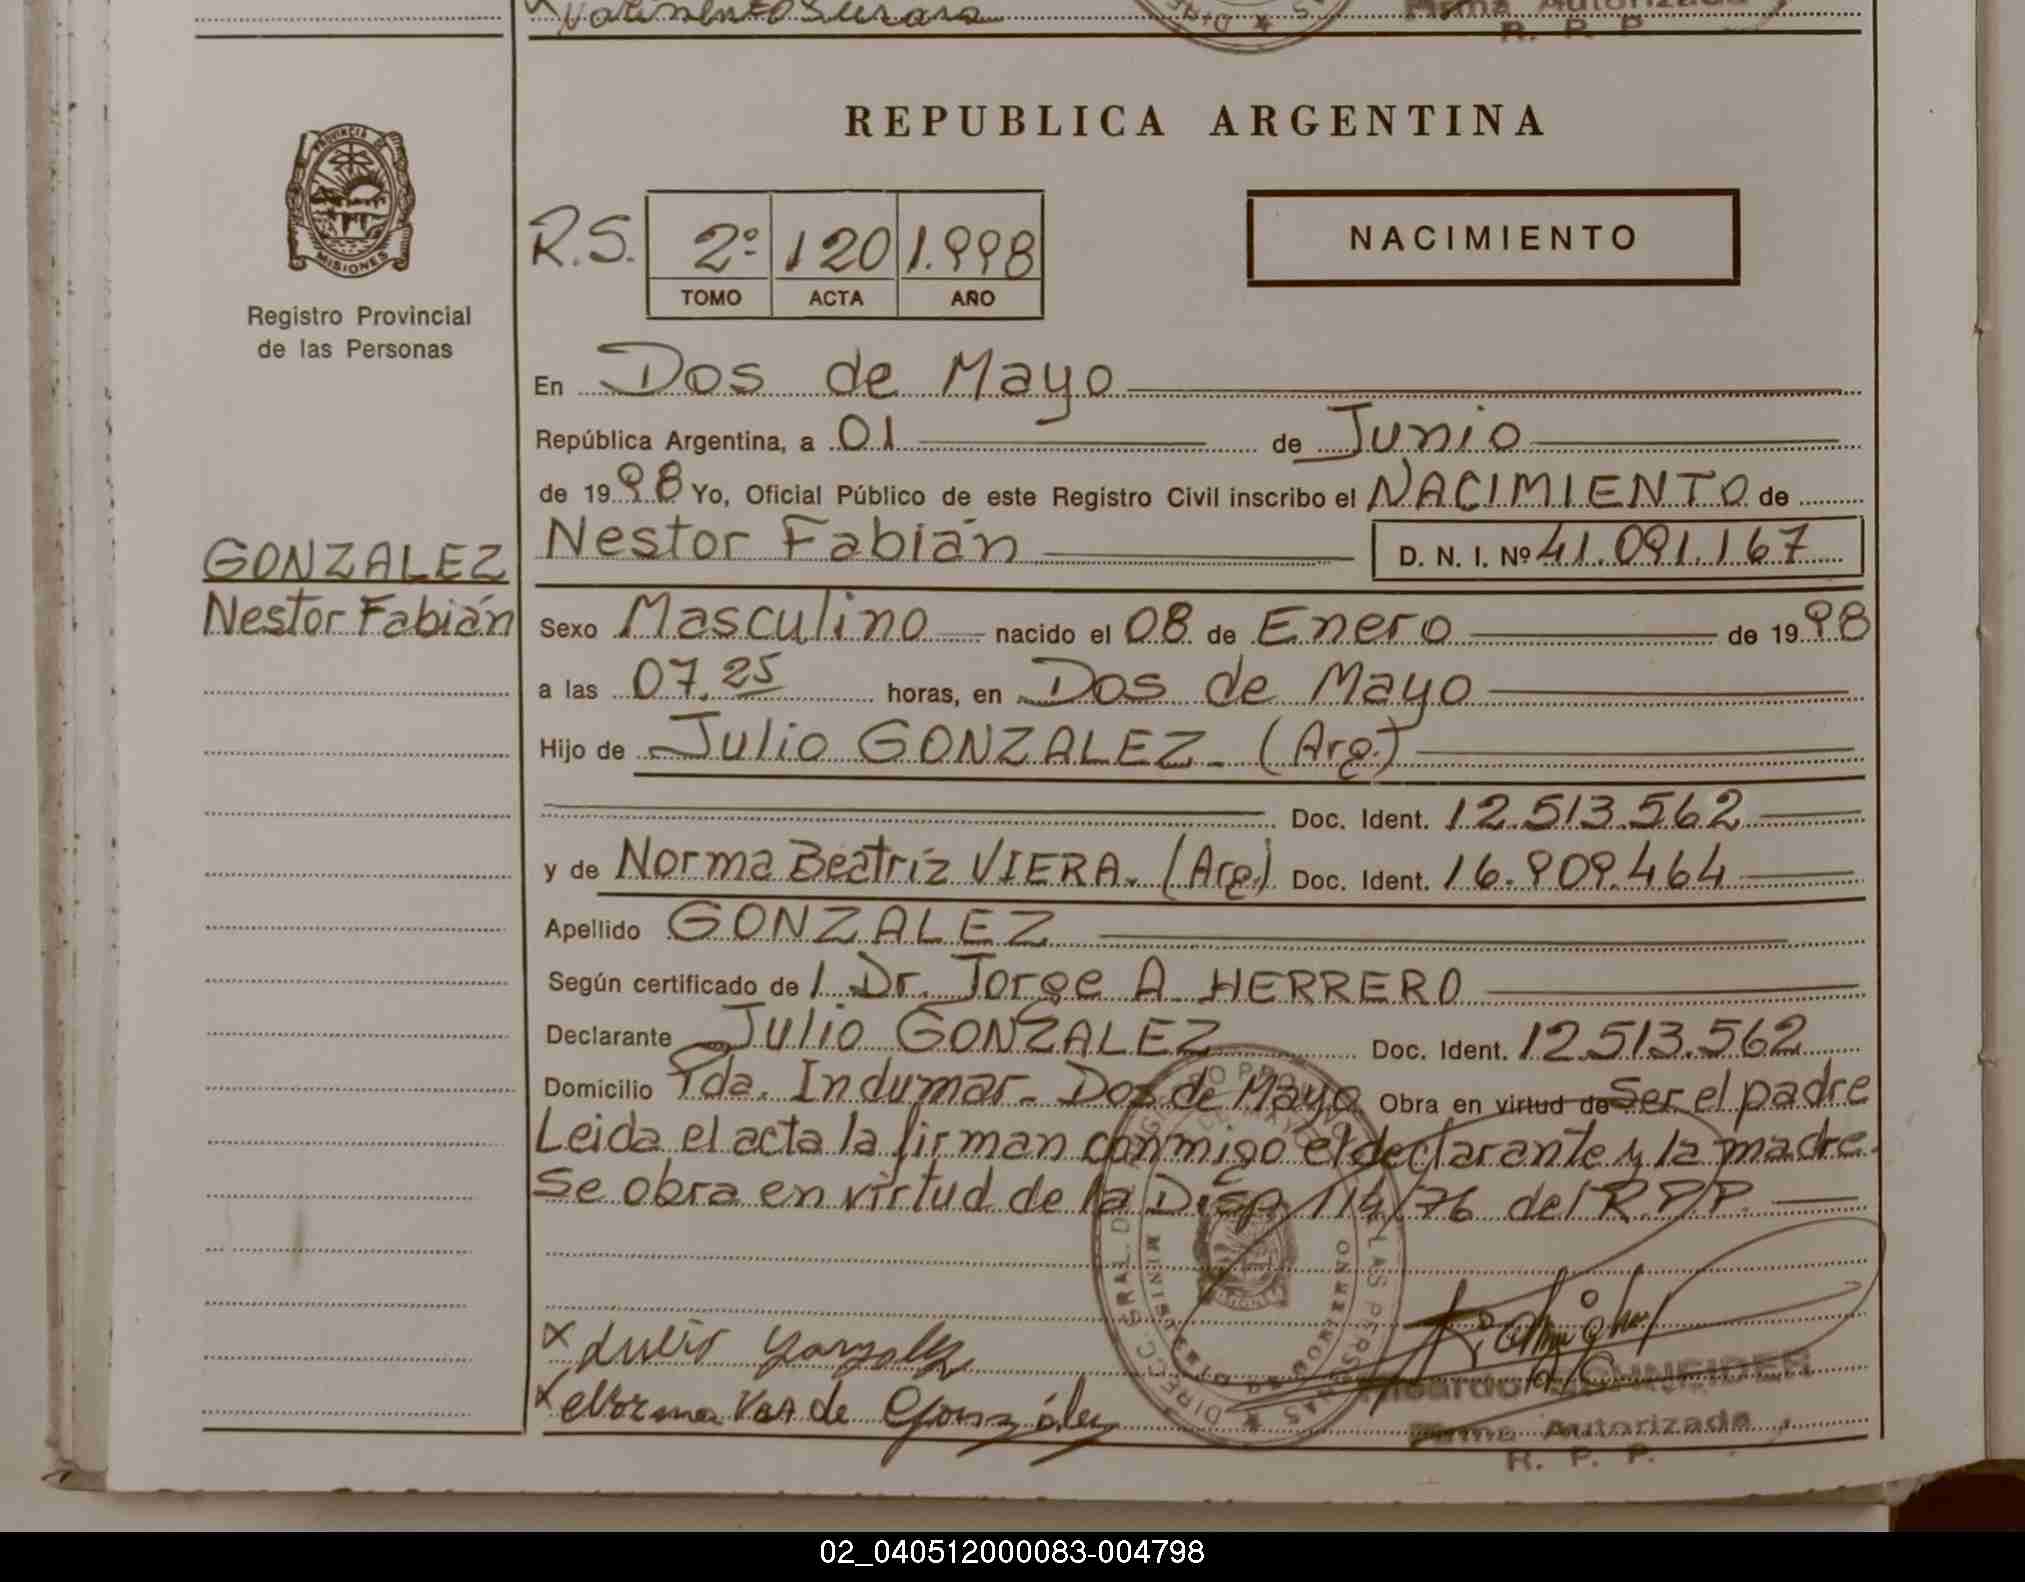 Firma Autorizada
R. P. P.
PROVINCIA DE
MISIONES
Registro Provincial
de las Personas
GONZALEZ
Nestor Fabián
REPUBLICA ARGENTINA
R.S. 2º 120 1.998
TOMO ACTA AÑO
NACIMIENTO
En Dos de Mayo
República Argentina, a 01 de Junio
de 1998 Yo, Oficial Público de este Registro Civil inscribo el NACIMIENTO de
Nestor Fabián D. N. I. Nº 41.091.167
Sexo Masculino nacido el 08 de Enero de 1998
a las 07.25 horas, en Dos de Mayo
Hijo de Julio GONZALEZ - (Arg.)
Doc. Ident. 12.513.562
y de Norma Beatríz VIERA. (Arg.) Doc. Ident. 16.909.464
Apellido GONZALEZ
Según certificado de l Dr. Jorge A. HERRERO
Declarante Julio GONZALEZ Doc. Ident. 12.513.562
Domicilio Pda. Indumar - Dos de Mayo Obra en virtud de Ser el padre
Leida el acta la firman conmigo el declarante y la madre.
Se obra en virtud de la Disp. 114/76 del R.P.P.
x Julio Gonzalez
x Norma V. de González
Ricardo SCHNEIDER
Firma Autorizada
R. P. P.
02_040512000083-004798